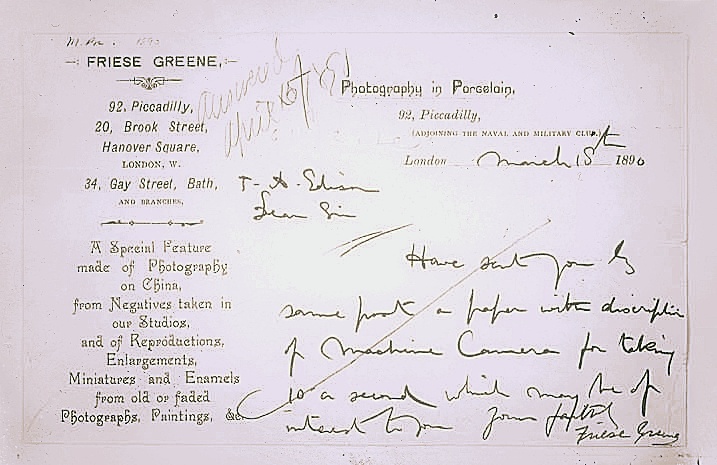 FRIESE GREENE,
92, Piccadilly,
20, Brook Street,
Hanover Square,
LONDON, W.
34, Gay Street, Bath,
AND BRANCHES,
A Special Feature
made of Photography
on China,
from Negatives taken in
our Studios,
and of Reproductions,
Enlargements,
Miniatures and Enamels
from old or faded
Photographs, Paintings, &c.
answered
April 15/90
Photography in Porcelain,
92, Piccadilly,
(ADJOINING THE NAVAL AND MILITARY CLUB.)
London March 18th 1890
T. A. Edison
Dear Sir
Have sent you by
same post a paper with discriptio
of Machine Camera for taking
10 a second which may be of
interest to you Yours faithfully
Friese Greene